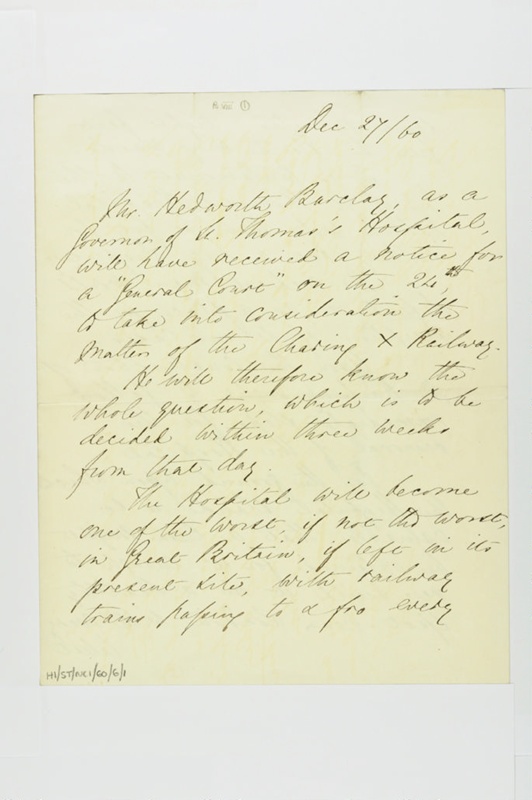 Dec 27/60
Mr. Hedworth Barclay, as a
Governor of St. Thomas's Hospital,
will have received a notice for
a "General Court" on the 24th,
to take into consideration the
matter of the Charing X Railway.
He will therefore know the
whole question, which is to be
decided within three weeks
from that day.
The Hospital will become
one of the worst, if not the worst,
in Great Britain, if left in its
present site, with railway
trains passing to & fro every
H1/ST/NC1/60/6/1